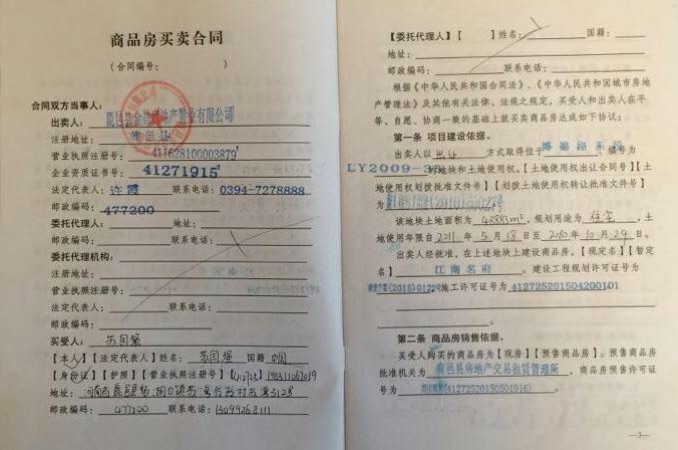 商品房买卖合同
（合同编号： ）
合同双方当事人：
出卖人： 鹿邑县 产置业有限公司
注册地址： 鹿邑县
营业执照注册号： 411628100003879
企业资质证书号： 41271915
法定代表人： 许霞 联系电话： 0394-7278888
邮政编码： 477200
委托代理人： 地址：
邮政编码： 联系电话：
委托代理机构：
注册地址：
营业执照注册号：
法定代表人： 联系电话：
邮政编码：
买受人：
【本人】【法定代表人】姓名： 国籍 中国
【身份证】【护照】【营业执照注册号】【 】
地址： 河南省鹿邑县
邮政编码： 477200 联系电话：
【委托代理人】【 】姓名： 国籍：
地址：
邮政编码： 联系电话：
根据《中华人民共和国合同法》、《中华人民共和国城市房地
产管理法》及其他有关法律、法规之规定，买受人和出卖人在平
等、自愿、协商一致的基础上就买卖商品房达成如下协议：
第一条 项目建设依据。
出卖人以 出让 方式取得位于
LY2009- 的地块和土地使用权。【土地使用权出让合同号】【土
地使用权划拨批准文件号】【划拨土地使用权转让批准文件号】
为
该地块土地面积为 ，规划用途为 住宅 ，土
地使用年限自 2011 年 5 月 18 日至 年 10 月 29 日。
出卖人经批准，在上述地块上建设商品房。【现定名】【暂定
名】 江南名府 。建设工程规划许可证号为
(2015)012 施工许可证号为 412725201504200101
第二条 商品房销售依据。
买受人购买的商品房为【现房】【预售商品房】。预售商品房
批准机关为 鹿邑县房地产交易租赁管理所 ，商品房预售许可证
号为 41272520150501916 。
—3—